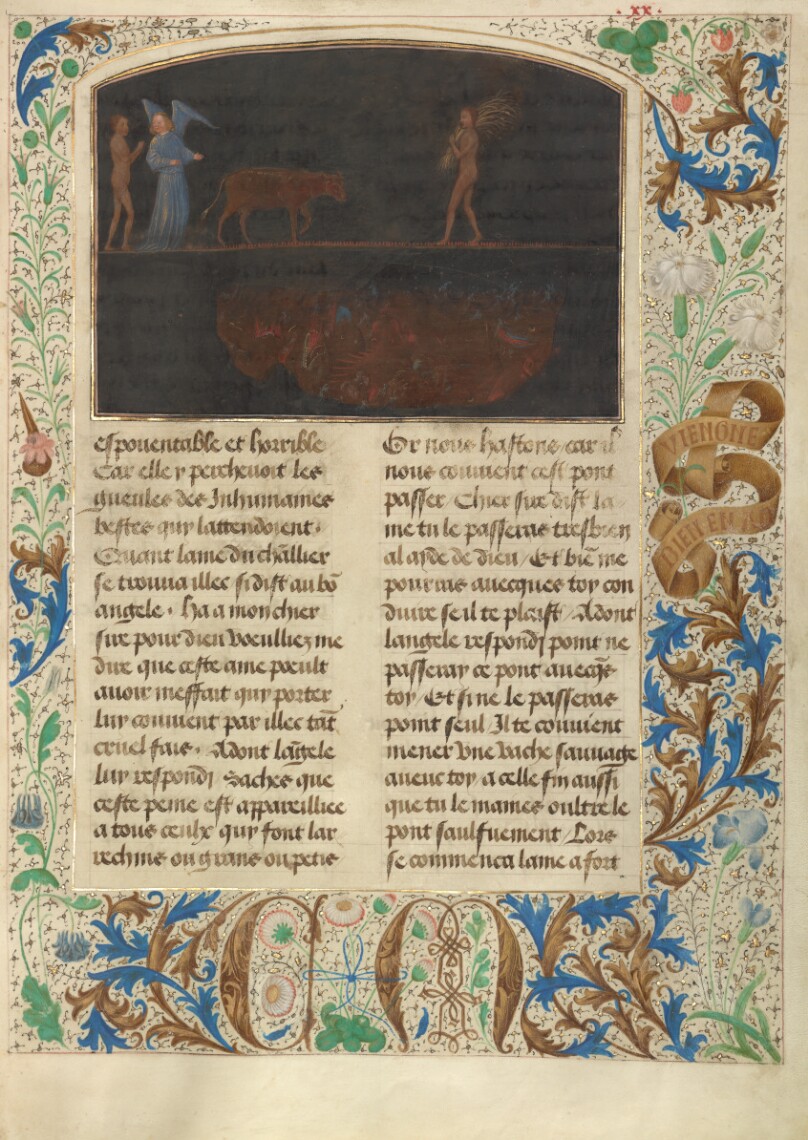 .xx.
espouentable et horrible
Car elle y percheuoit les
gueules des Inhumaines
bestes quy lattendoient.
Quant lame du cħallier
se trouua illec si dist au bō
angele. ha a mon chier
sire pour dieu voeulliez me
dire que ceste ame poeult
auoir meffait quy porter
luy conuient par illec tāt
cruel fais. Adont lāgele
luy respondj Saches que
ceste peine est appareilliee
a tous ceulx quy font lar
rechins ou grans ou petis
Or nous hastons car il
nous conuient cest pont
passer / Chier sire dist la
me tu le passeras tresbien
al ayde de dieu / Et biē me
pourras auecques toy con
duire se il te plaist / Adont
langele respondj point ne
passeray ce pont auecq̄s
toy / Et si ne le passeras
point seul / Il te conuient
mener vne vache sauuage
aueuc toy a celle fin aussi
que tu le maines oultre le
pont saulfuement / Lors
se commenca lame a fort
VIENGNE
DIEN EN
C M